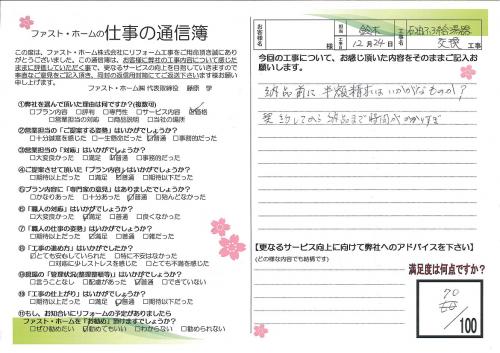 ファスト・ホームの仕事の通信簿
この度は、ファスト・ホーム株式会社にリフォーム工事をご用命頂き誠にあり
がとうございました。この通信簿は、お客様に弊社の工事内容について感じた
ままに評価していただく事で、更なるサービスの向上を目指していきますので
率直なご意見をご記入頂き、同封の返信用封筒にてご返送下さいます様お願い
申し上げます。
ファスト・ホーム㈱ 代表取締役 藤原 学
①弊社を選んで頂いた理由は何ですか?(複数可)
□プラン内容 □評判 □専門性 □サービス内容 ☑価格
□営業担当の対応 □商品説明 □当社の場所
②営業担当の「ご提案する姿勢」はいかがでしょうか?
□十分誠意を感じた □一生懸命だった ☑普通 □事務的だった
③営業担当の「対応」はいかがでしょうか?
□大変良かった □満足 ☑普通 □事務的だった
④ご提案させて頂いた「プラン内容」はいかがでしょうか?
□期待以上だった □満足 ☑普通 □期待以下だった
⑤プラン内容に「専門家の意見」はありましたでしょうか?
□かなりあった □十分あった ☑普通 □殆んどなかった
⑥「職人の対応」はいかがでしょうか?
□大変良かった ☑満足 □普通 □良くなかった
⑦「職人の仕事の姿勢」はいかがでしょうか?
□期待以上だった ☑満足 □普通 □雑だった
⑧「工事の進め方」はいかがでしたか?
☑とても安心していられた □特に不安はなかった
□対応に少しストレスを感じた □とても不満を感じた
⑨現場の「管理状況(整理整頓等)」はいかがでしょうか?
□言うことなし □配慮があった ☑普通 □できていない
⑩「工事の仕上がり」はいかがでしょうか?
□期待以上だった □満足 ☑普通 □期待以下だった
⑪もし、お知合いにリフォームの予定がありましたら
ファスト・ホームを「お勧め」頂けますでしょうか?
□ぜひ勧めたい ☑勧めてもいい □わからない □勧められない
お客様名 様 担当 鈴木 工事名 石油ふろ給湯器
12月24日 交換 工事
今回の工事について、お感じ頂いた内容をそのままご記入お
願いします。
納品前に半額請求はいかがなものか?
契約してから納品まで時間がかかりすぎ
【更なるサービス向上に向けて弊社へのアドバイスを下さい】
(どの様な内容でも結構です)
満足度は何点ですか?
70
/100